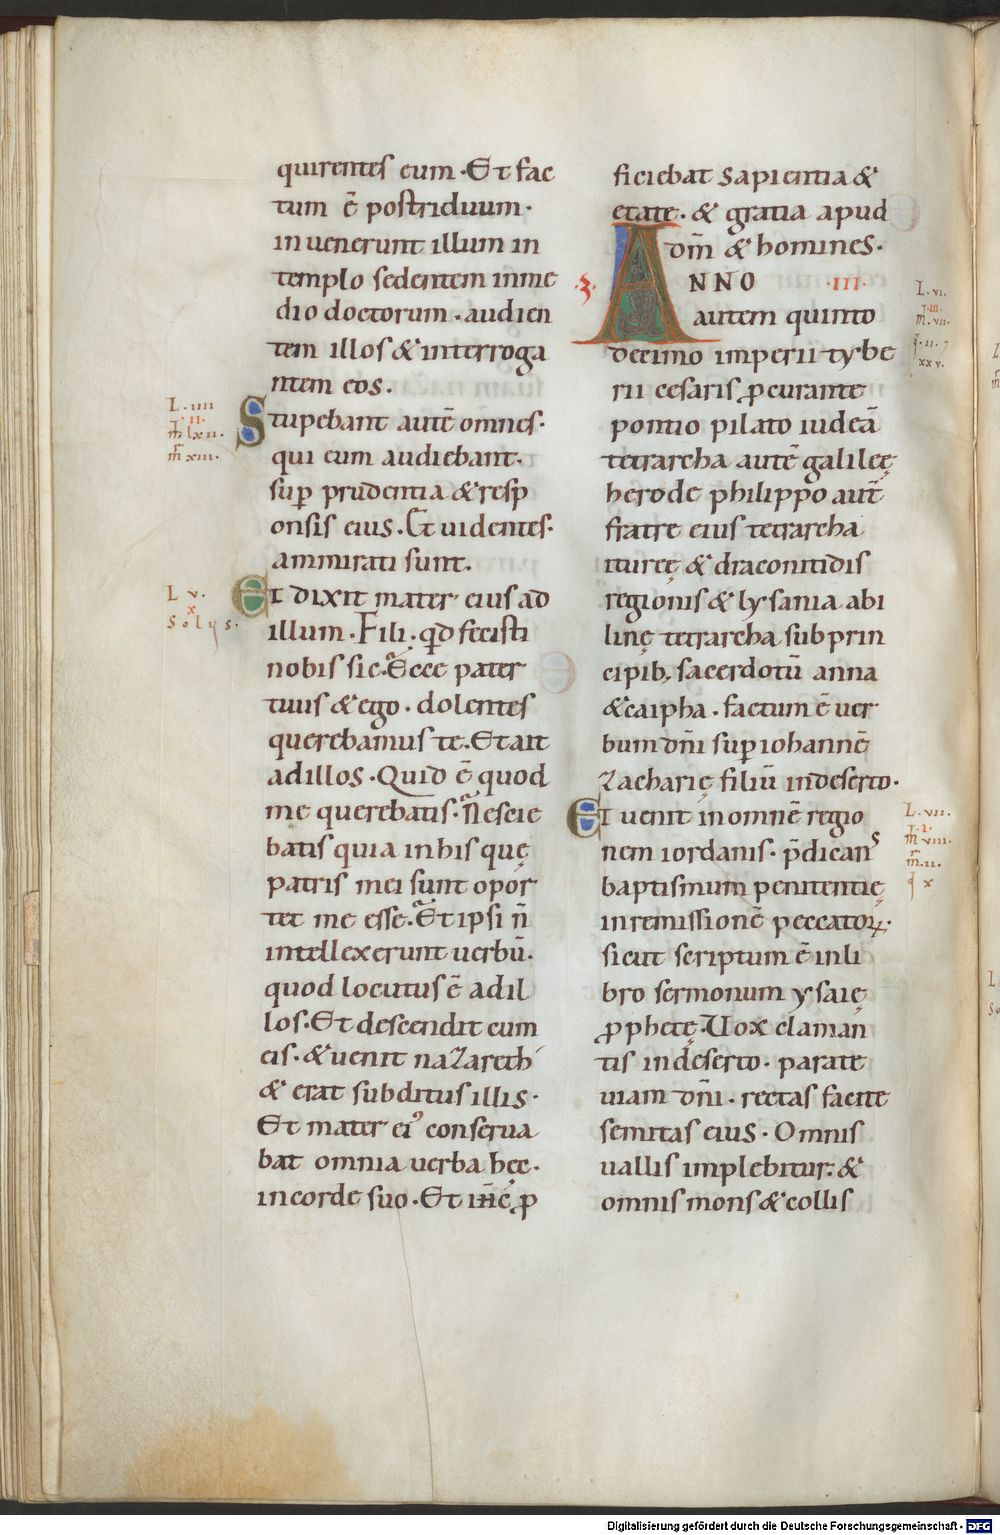 quirentes eum · Et fac
tum ē postriduum ·
inuenerunt illum in
templo sedentem inme
dio doctorum · audien
tem illos & interroga
ntem eos .
L . iiii
ii
m̄ lxii .
m̄ xiii .
Stupebant autē omnes ·
qui eum audiebant .
suꝑ prudentia & resp
onsis eius . Et uidentes ·
ammirati sunt .
L v .
x
Solus .
Et dixit mater eius ad
illum . Fili . qd fecisti
nobis sic . Ecce pater
tuus & ego . dolentes
querebamus te . Et ait
adillos . Quid ē quod
me querebatis . n̄ escie
batis quia inhis quę
patris mei sunt opor
tet me esse . Et ipsi n̄
intellexerunt uerbū .
quod locutus ē adil
los . Et descendit eum
eis . & uenit nazareth
& erat subditus illis .
Et mater eiꝰ conserua
bat omnia uerba hęc .
incorde suo . Et ꝓ
ficiebat sapientia &
etate . & gratia apud
dm̄ & homines .
·3·
ANNO ·III·
autem quinto
decimo imperii tybe
rii cesaris ꝓcurante
pontio pilato iudeā
tetrarcha autē galileę
herode philippo aut̄
fratre eius tetrarcha
itureę & draconitidis
regionis & lysania abi
linę tetrarcha sub prin
cipib; sacerdotū anna
& caipha . factum ē uer
bum dn̄i suꝑ iohannē
zacharię filiū indeserto .
L . vi .
iii
m . vii .
L . vii .
m̄ viii .
m . ii .
x
Et uenit inomnē regio
nem iordanis . p̄dicans
baptismum penitentię
inremissionē peccatoꝝ .
sicut scriptum ē inli
bro sermonum ysaię
ꝓphetę . Uox claman
tis indeserto . parate
uiam dn̄i . rectas facite
semitas eius . Omnis
uallis implebitur . &
omnis mons & collis
Digitalisierung gefördert durch die Deutsche Forschungsgemeinschaft - DFG